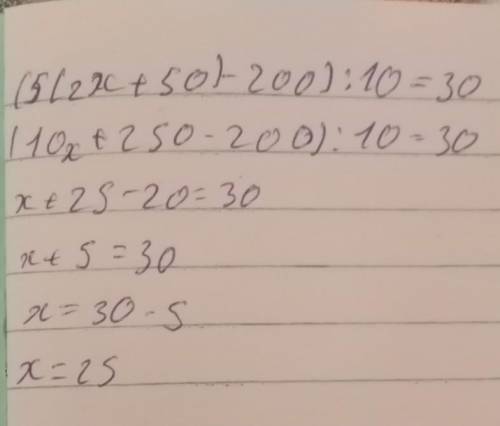 (5(2x+50)-200):10=30
(10x+250-200):10=30
x+25-20=30
x+5=30
x=30-5
x=25